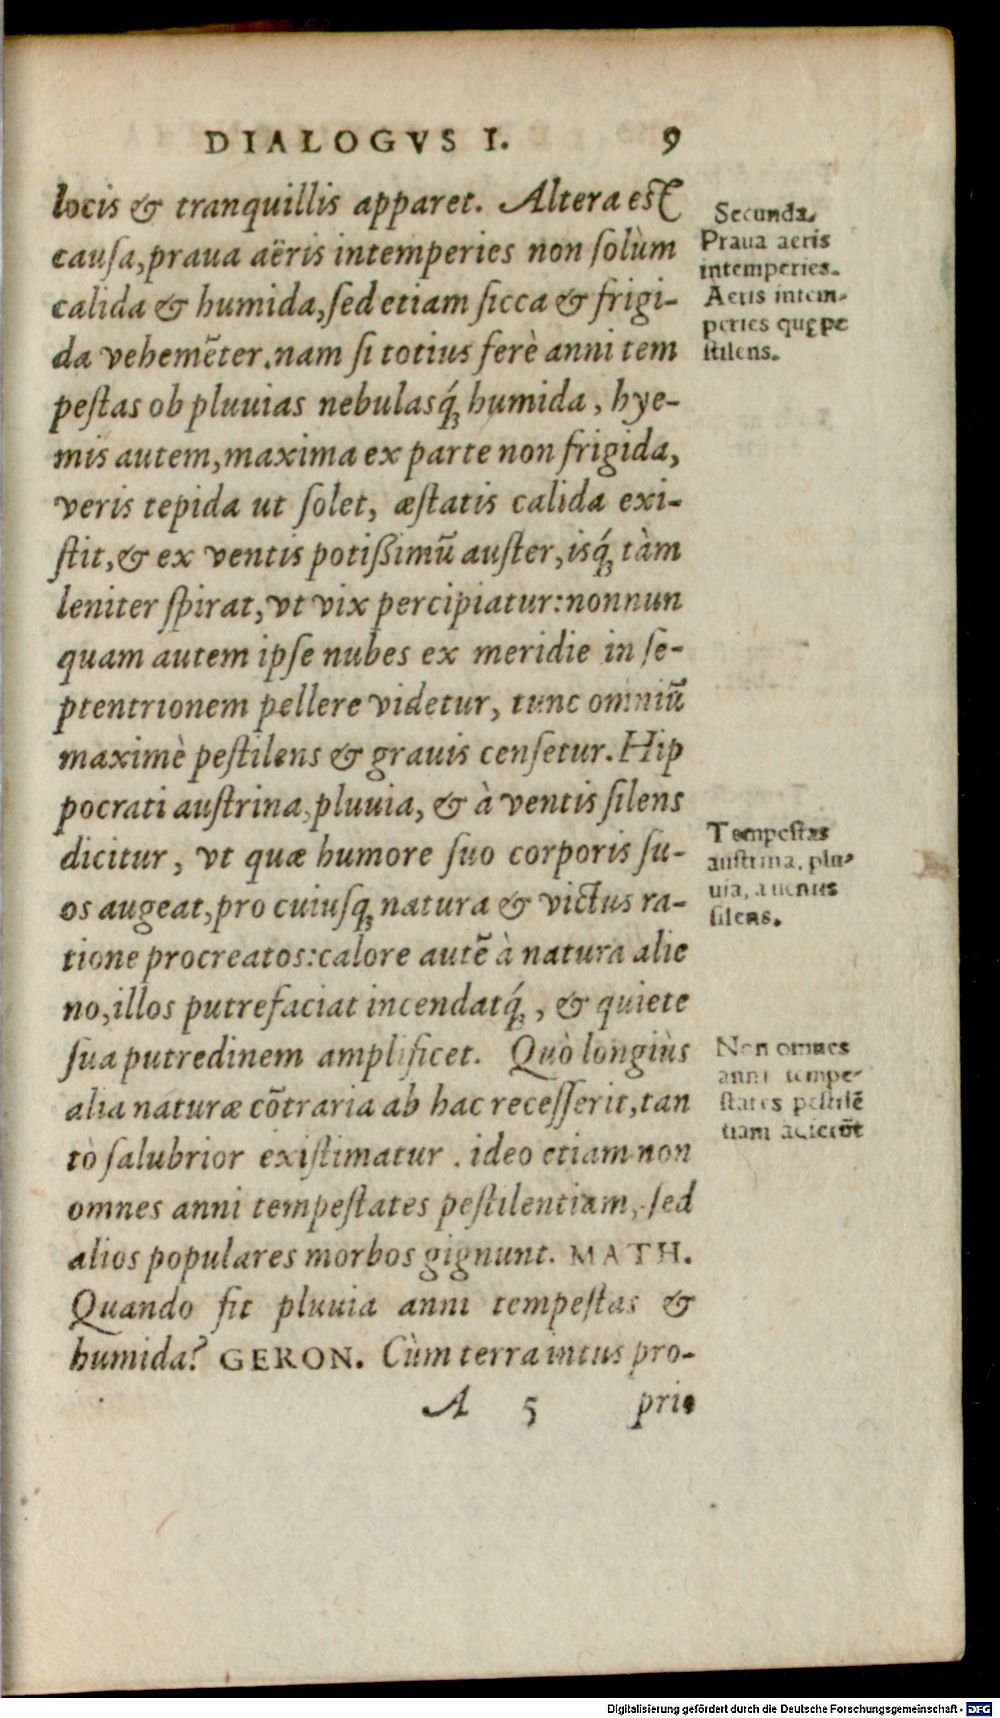 DIALOGVS I. 9
locis & tranquillis apparet. Altera est
causa, praua aëris intemperies non ſolùm
calida & humida, ſed etiam ſicca & frigi-
da vehemēter. nam ſi totius ferè anni tem
peſtas ob pluuias nebulasq́; humida, hye-
mis autem, maxima ex parte non frigida,
veris tepida ut ſolet, æſtatis calida exi-
ſtit, & ex ventis potiſſimū auſter, isq́; tàm
leniter ſpirat, vt vix percipiatur: nonnun
quam autem ipſe nubes ex meridie in ſe-
ptentrionem pellere videtur, tunc omniū
maximè peſtilens & grauis cenſetur. Hip
pocrati auſtrina, pluuia, & à ventis ſilens
dicitur, vt quæ humore ſuo corporis ſu-
os augeat, pro cuiuſq; natura & victus ra-
tione procreatos: calore autē à natura alie
no, illos putrefaciat incendatq́;, & quiete
ſua putredinem amplificet. Quò longiùs
alia naturæ cōtraria ab hac receſſerit, tan
tò ſalubrior exiſtimatur. ideo etiam non
omnes anni tempeſtates peſtilentiam, ſed
alios populares morbos gignunt. MATH.
Quando fit pluuia anni tempeſtas &
humida? GERON. Cùm terra intus pro-
A 5 prio
Secunda.
Praua aeris
intemperies.
Aeris intem-
peries quę pe
ſtilens.
Tempeſtas
auſtrina, plu-
uia, a uentis
ſilens.
Non omnes
anni tempe-
ſtates peſtilē
tiam
Digitalisierung gefördert durch die Deutsche Forschungsgemeinschaft - DFG